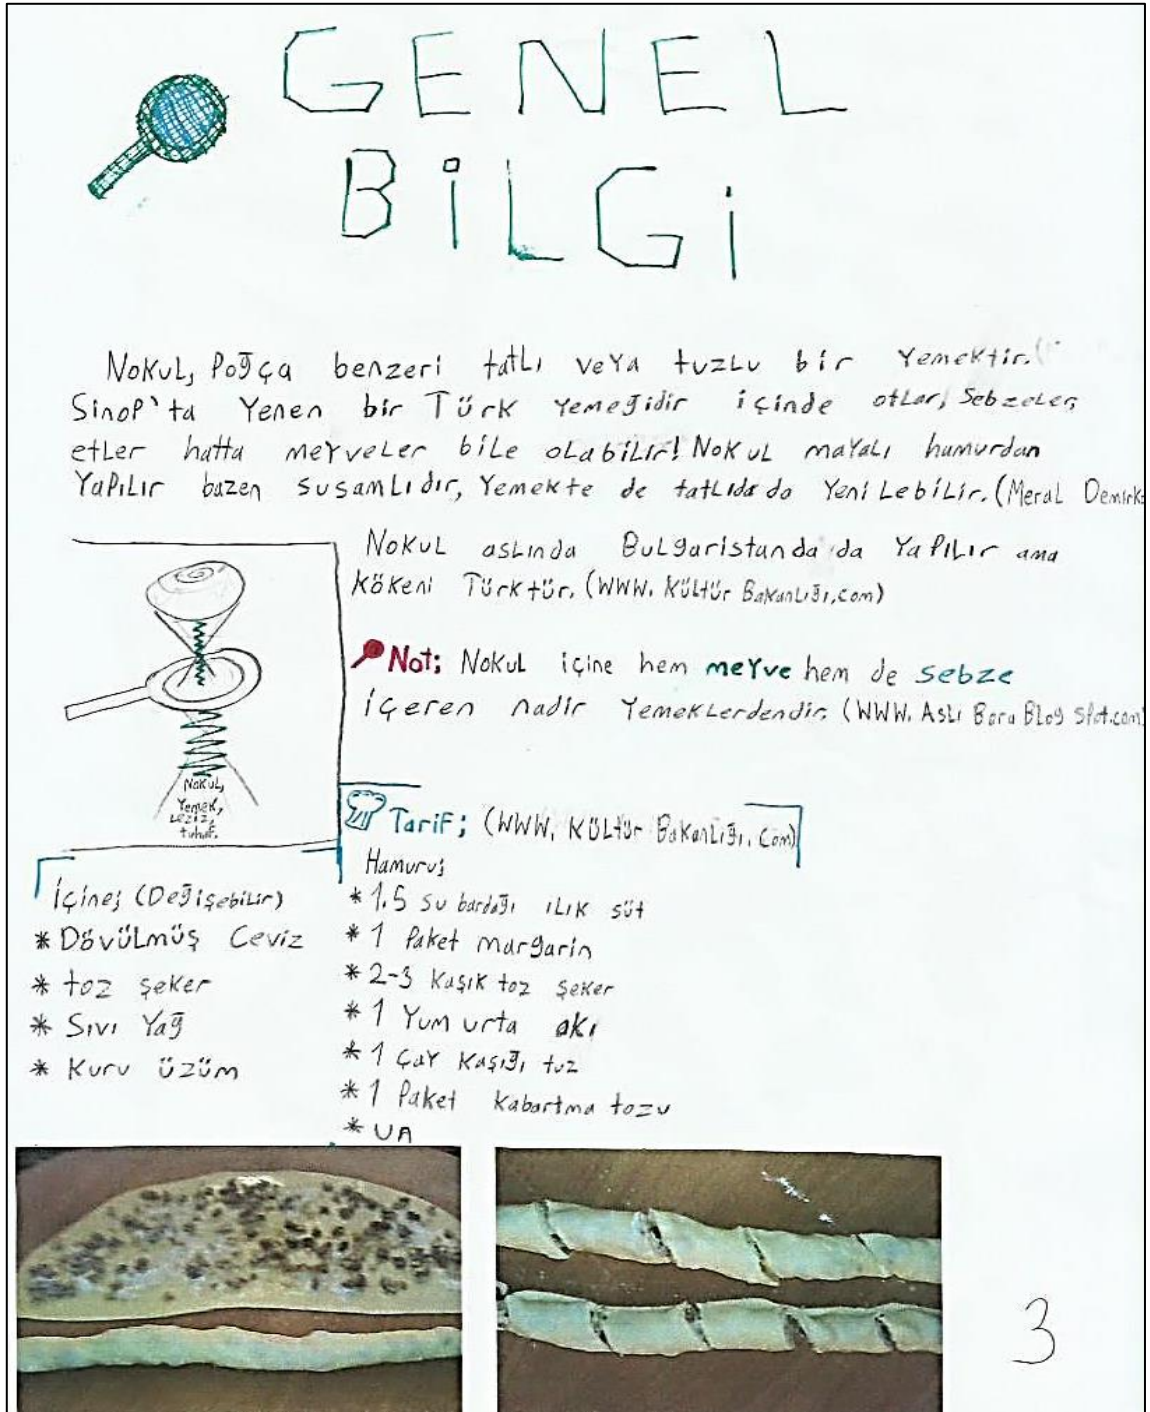 GENEL
BİLGİ
Nokul, Poğça benzeri tatlı veya tuzlu bir yemektir.
Sinop'ta Yenen bir Türk yemeğidir içinde otlar, Sebzeler,
etler hatta meyveler bile olabilir! Nokul mayalı hamurdan
Yapılır bazen susamlıdır, Yemekte de tatlıda da Yenilebilir. (Meral
Nokul aslında Bulgaristanda da Yapılır ama
kökeni Türktür. (WWW. Kültür Bakanlığı.com)
Not; Nokul içine hem meyve hem de sebze
içeren nadir Yemeklerdendir. (WWW. Aslı Bora Blog Spot.com)
Nokul,
Yemek,
Leziz,
tuhaf.
Tarif; (WWW. Kültür Bakanlığı. Com)
Hamuru;
* 1.5 su bardağı ılık süt
* 1 Paket margarin
* 2-3 kaşık toz şeker
* 1 Yumurta akı
* 1 Çay kaşığı tuz
* 1 Paket kabartma tozu
* UA
İçine; (Değişebilir)
* Dövülmüş Ceviz
* toz şeker
* Sıvı Yağ
* Kuru üzüm
3